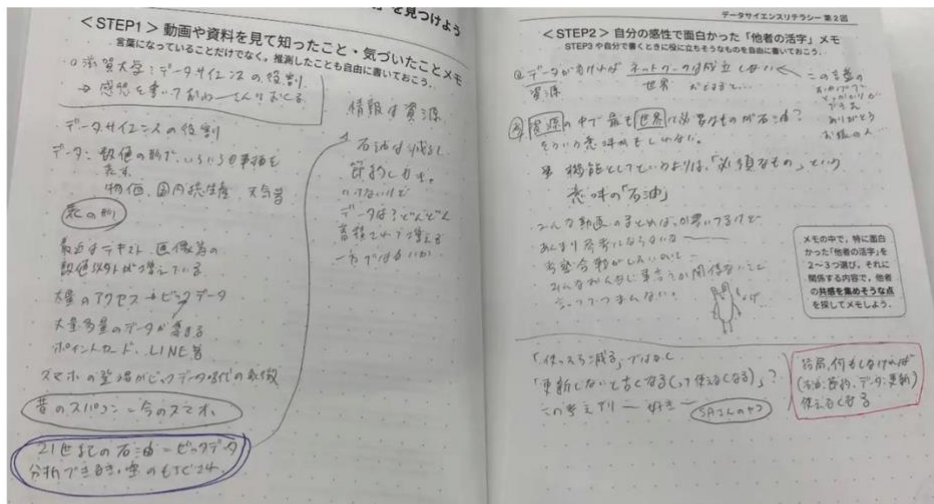 を見つけよう
＜STEP1＞動画や資料を見て知ったこと・気づいたことメモ
言葉になっていることだけでなく。推測したことも自由に書いておこう.
滋賀大学：データサイエンスの役割
→ 感想を書いて
データサイエンスの役割
データ：数値の形で、いろいろな事柄を
表す
物価、国内総生産、天気等
表の例
最近はテキスト、画像等の
数値以外が増えている
大量のアクセス → ビックデータ
大量多量のデータが集まる
ポイントカード、LINE等
スマホの登場がビックデータ時代の象徴
昔のスパコン＝今のスマホ
21世紀の石油＝ビックデータ
分析できるき
情報は資源
石油は減るし
節約しなきゃ
いけないけど
データは？どんどん
蓄積されて増える
一方ではないか
データサイエンスリテラシー 第2回
＜STEP2＞自分の感性で面白かった「他者の活字」メモ
STEP3や自分で書くときに役に立ちそうなものを自由に書いておこう.
データがなければ ネットワークは成立しない
資源 世界
この言葉の
ありがとう
お猿の人…
資源の中で最も世界に必要なものが石油？
そういう意味かもしれない。
※ 機能としてというよりは、「必須なもの」という
意味の「石油」
みんな動画のまとめばっか書いてるけど
あんまり参考にならないなー
みんなおんなじ事言うか関係ないこと
言っててつまんない。
メモの中で，特に面白
かった「他者の活字」を
2～3つ選び，それに
関係する内容で，他者
の共感を集めそうな点
を探してメモしよう.
「使ったら減る」ではなく
「更新しないと古くなる(って使えなくなる)」？
この考え方 好き
結局、何もしなければ
(石油：節約、データ：更新)
使えなくなる